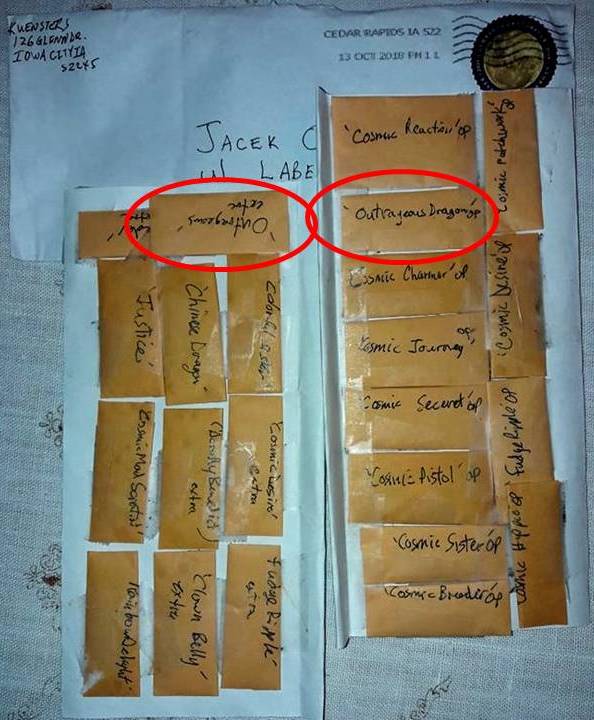 KUENSTERS
126 GLENN DR.
IOWA CITY IA
52245
CEDAR RAPIDS IA 522
13 OCT 2018 PM 1 L
JACEK C
LABE
'Cosmic Reaction' op
'Outrageous Dragon' op
Cosmic Charmer' op
Cosmic Journey' op
Cosmic Secret' op
'Cosmic Pistol' op
'Cosmic Sister' op
'Cosmic Breeder' op
Cosmic Patchwork' op
'Cosmic Desire' op
Fudge Ripple' op
Cosmic Hippie op
'Outrageous'
extra
'Justice'
'Chinese Dragon'
'Cosmic Mad Scientist'
extra
'Cosmic Desire'
extra
'Rainbow Delight'
'Clown Belly'
extra
'Fudge Ripple'
extra